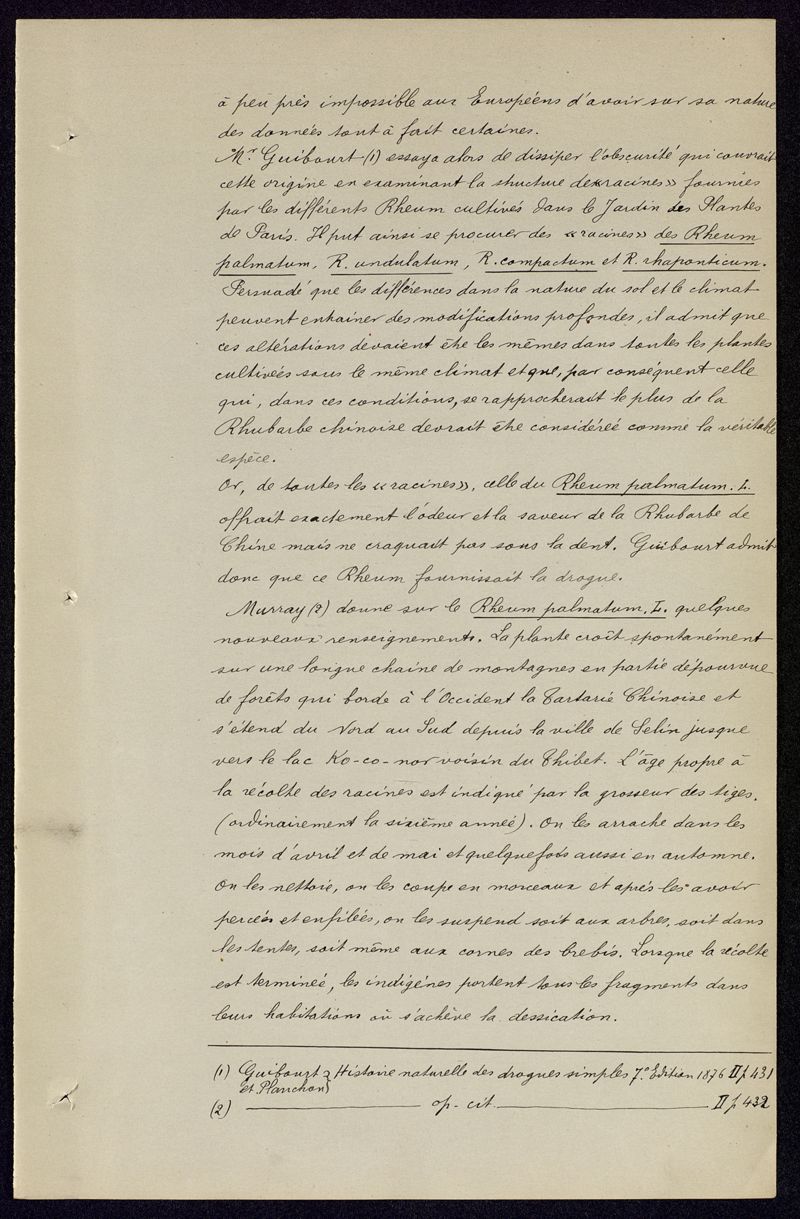 à peu près impossible aux Européens d'avoir sur sa nature
des données tout à fait certaines.
Mr. Guibourt (1) essaya alors de dissiper l'obscurité qui couvrait
cette origine en examinant la structure de «racines» fournies
par les différents Rheum cultivés dans le Jardin des Plantes
de Paris. Il put ainsi se procurer des «racines» des Rheum
palmatum, R. undulatum, R. compactum et R. rhaponticum.
Persuadé que les différences dans la nature du sol et le climat
peuvent entrainer des modifications profondes, il admit que
ces altérations devaient être les mêmes dans toutes les plantes
cultivées sous le même climat et que, par conséquent celle
qui, dans ces conditions, se rapprocherait le plus de la
Rhubarbe chinoise devrait être considérée comme la véritable
espèce.
Or, de toutes les «racines», celle du Rheum palmatum. L.
offrait exactement l'odeur et la saveur de la Rhubarbe de
Chine mais ne craquait pas sous la dent. Guibourt admit
donc que ce Rheum fournissait la drogue.
Murray (2) donne sur le Rheum palmatum. L. quelques
nouveaux renseignements. La plante croît spontanément
sur une longue chaine de montagnes en partie dépourvue
de forêts qui borde à l'Occident la Tartarie Chinoise et
s'étend du Nord au Sud depuis la ville de Selin jusque
vers le lac Ko-co-nor voisin du Thibet. L'âge propre à
la récolte des racines est indiqué par la grosseur des tiges.
(ordinairement la sixième année). On les arrache dans les
mois d'avril et de mai et quelquefois aussi en automne.
On les nettoie, on les coupe en morceaux et après les avoir
percées et enfilées, on les suspend soit aux arbres, soit dans
les tentes, soit même aux cornes des brebis. Lorsque la récolte
est terminée, les indigènes portent tous les fragments dans
leurs habitations où s'achève la dessication.
(1) Guibourt et Planchon} Histoire naturelle des drogues simples 7e Edition 1876 II p 431
(2) ——— op. cit. ——— II p 432